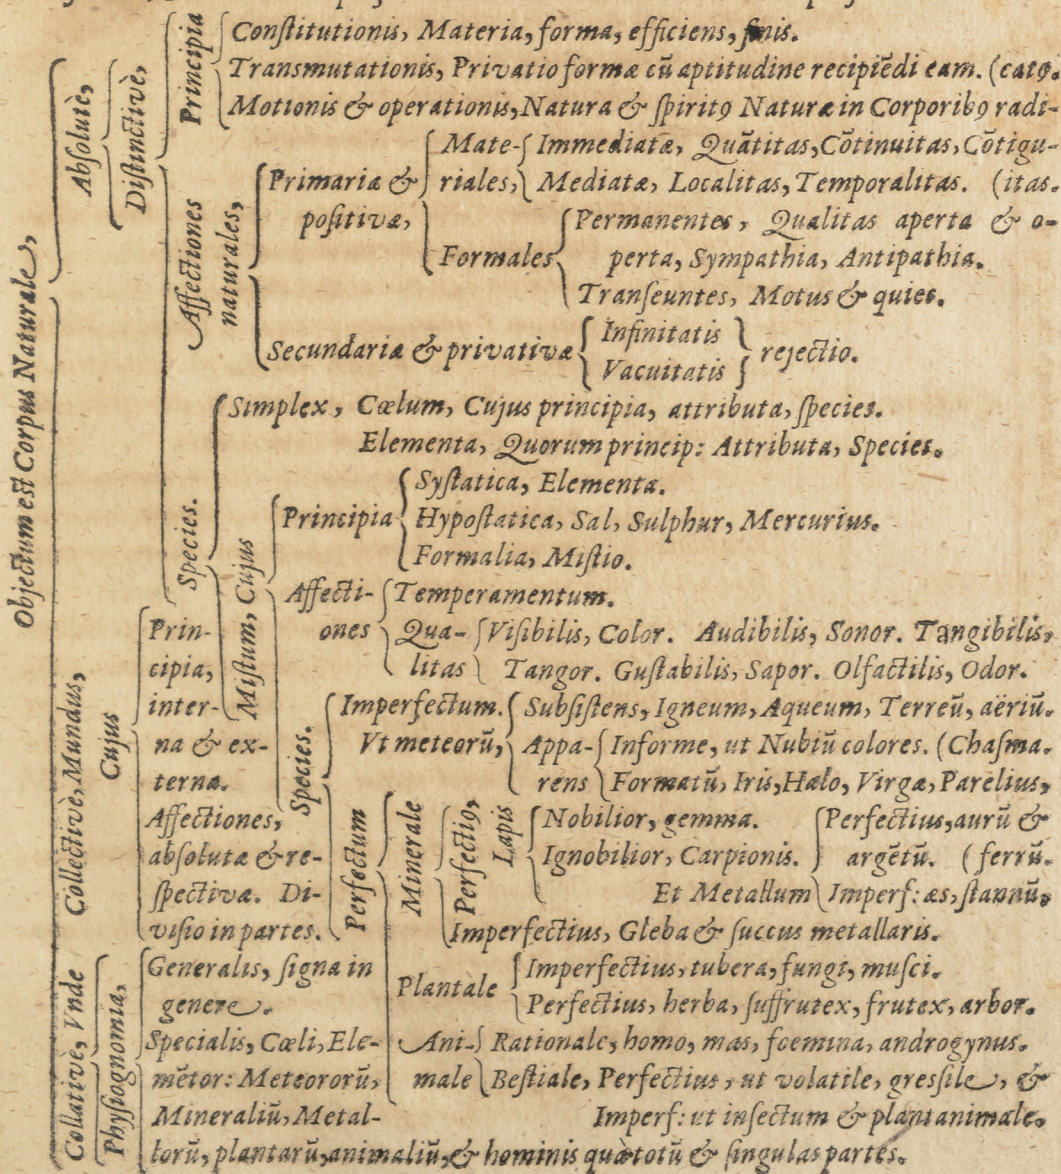 Objectum est Corpus Naturale,
Absolutè,
Distinctivè,
Principia
Constitutionis, Materia, forma, efficiens, finis.
Transmutationis, Privatio formæ cū aptitudine recipiēdi eam. (catꝰ.
Motionis & operationis, Natura & ſpiritꝰ Naturæ in Corporibꝰ radi-
Affectiones
naturales,
Primariæ &
poſitivæ,
Mate-
riales,
Immediatæ, Quātitas, Cōtinuitas, Cōtigu-
Mediatæ, Localitas, Temporalitas. (itas.
Formales
Permanentes, Qualitas aperta & o-
perta, Sympathia, Antipathia.
Tranſeuntes, Motus & quies.
Secundariæ & privativæ
Infinitatis
Vacuitatis
rejectio.
Species.
Simplex, Cœlum, Cujus principia, attributa, ſpecies.
Elementa, Quorum princip: Attributa, Species.
Miſtum, Cujus
Principia
Syſtatica, Elementa.
Hypoſtatica, Sal, Sulphur, Mercurius.
Formalia, Miſtio.
Affecti-
ones
Temperamentum.
Qua-
litas
Viſibilis, Color. Audibilis, Sonor. Tangibilis,
Tangor. Guſtabilis, Sapor. Olfactilis, Odor.
Species.
Imperfectum.
Vt meteorū,
Subſiſtens, Igneum, Aqueum, Terreū, aëriū.
Appa-
rens
Informe, ut Nubiū colores. (Chaſma.
Formatū, Iris, Halo, Virgæ, Parelius,
Perfectum
Minerale
Perfectiꝰ,
Lapis
Nobilior, gemma.
Ignobilior, Carpionis.
Et Metallum
Perfectius, aurū &
argētū. (ferrū.
Imperf: æs, ſtannū,
Imperfectius, Gleba & ſuccus metallaris.
Plantale
Imperfectius, tubera, fungi, muſci.
Perfectius, herba, ſuffrutex, frutex, arbor.
Ani-
male
Rationale, homo, mas, fœmina, androgynus.
Beſtiale, Perfectius, ut volatile, greſſile, &
Imperf: ut inſectum & plantanimale.
Collectivè, Mundus,
Cujus
Prin-
cipia,
inter-
na & ex-
terna.
Affectiones,
abſolutæ & re-
ſpectivæ. Di-
viſio in partes.
Collativè, Vnde
Phyſiognomia,
Generalis, ſigna in
genere.
Specialis, Cœli, Ele-
mētor: Meteororū,
Mineraliū, Metal-
lorū, plantarū, animaliū, & hominis quò totū & ſingulas partes.